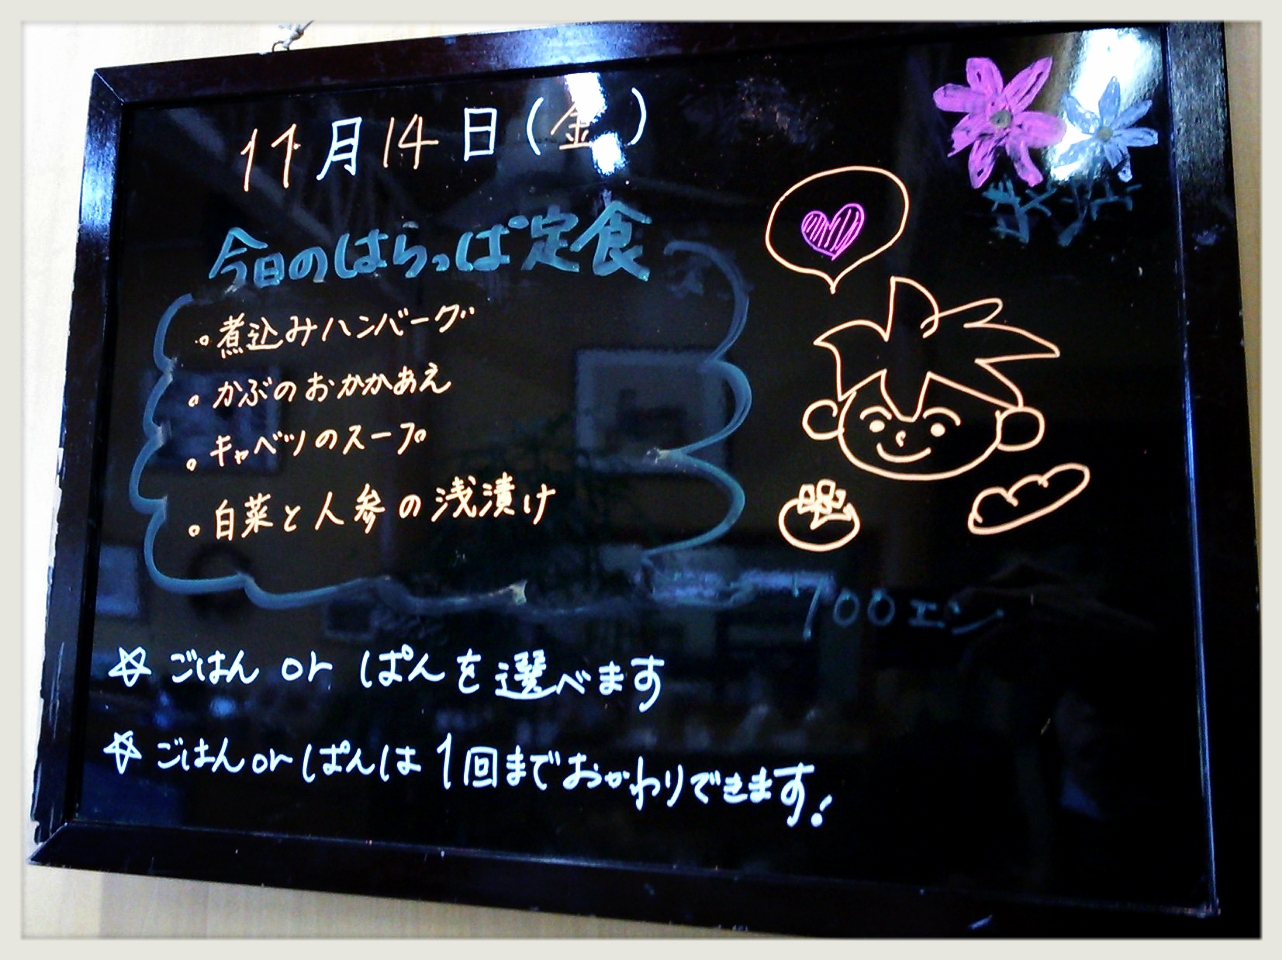 11月14日(金)
今日のはらっぱ定食
。煮込みハンバーグ
。かぶのおかかあえ
。キャベツのスープ
。白菜と人参の浅漬け
700エン
☆ごはん or ぱんを選べます
☆ごはん or ぱんは1回までおかわりできます!